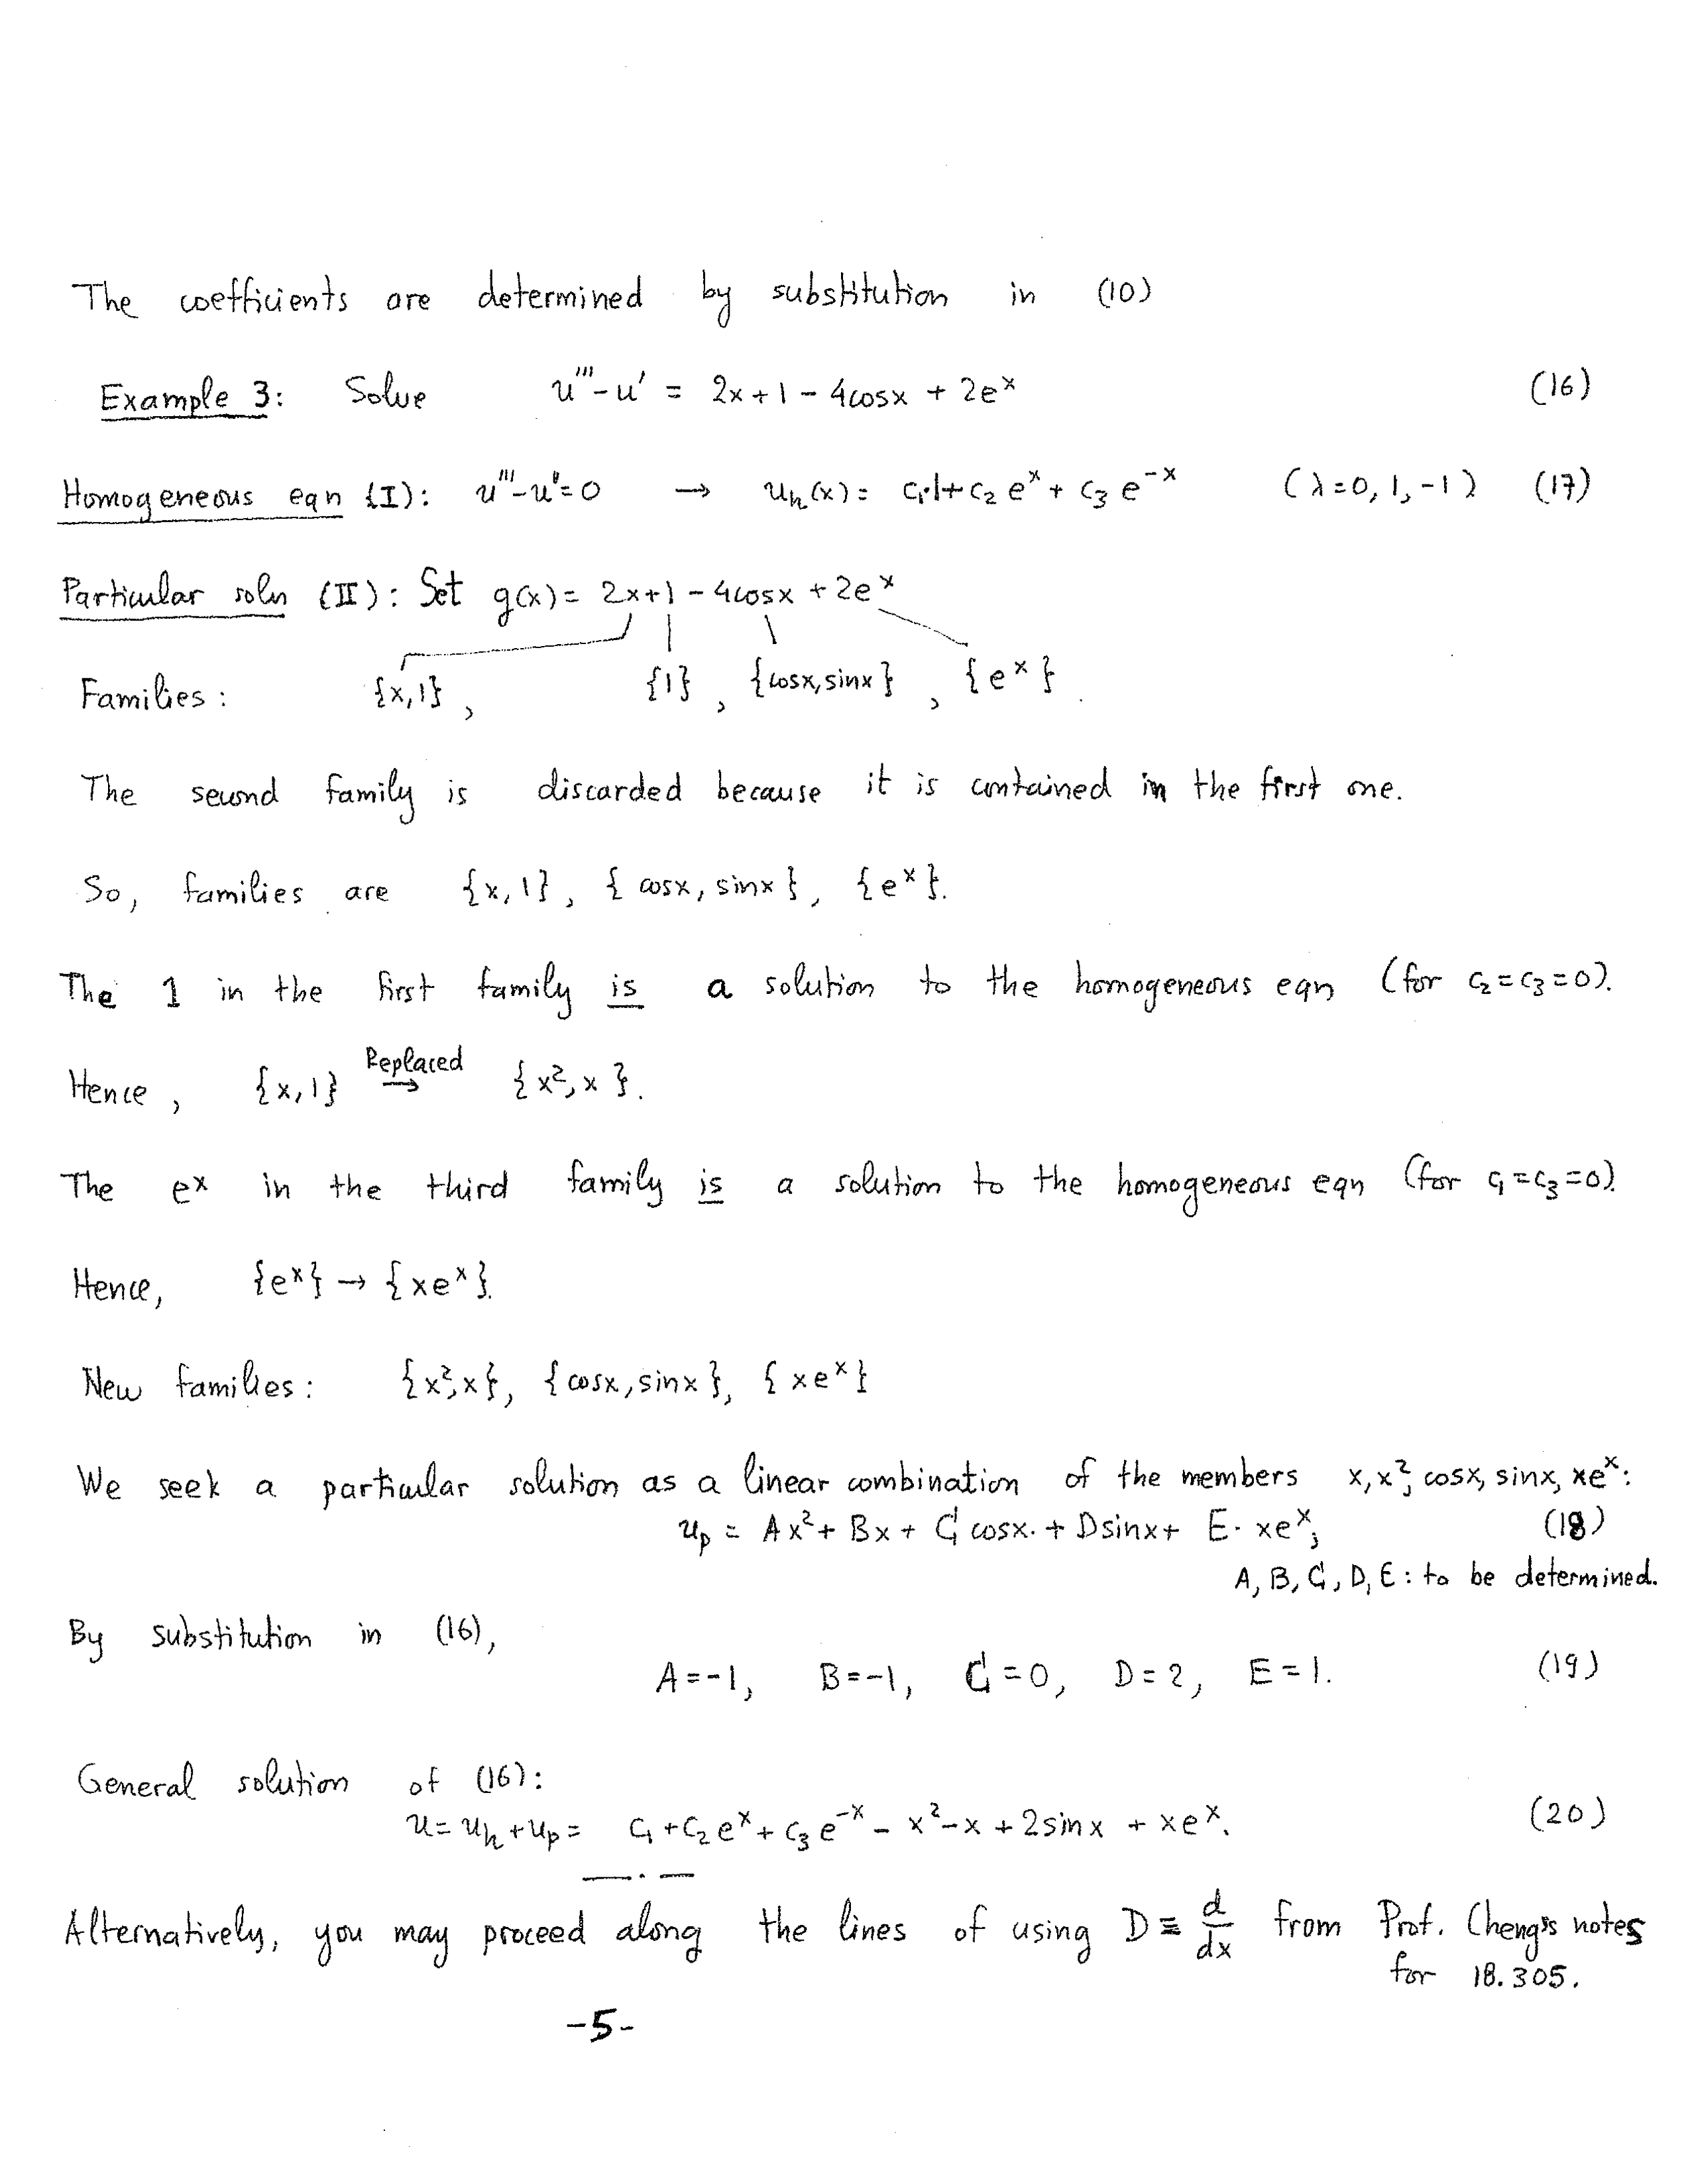 The coefficients are determined by substitution in (10)
Example 3: Solve u''' - u' = 2x + 1 - 4cosx + 2e^x (16)
Homogeneous eqn (I): u''' - u' = 0 → u_h(x) = c₁·1 + c₂ e^x + c₃ e^-x (λ = 0, 1, -1) (17)
Particular soln (II): Set g(x) = 2x + 1 - 4cosx + 2e^x
Families: {x, 1}, {1}, {cosx, sinx}, {e^x}.
The second family is discarded because it is contained in the first one.
So, families are {x, 1}, {cosx, sinx}, {e^x}.
The 1 in the first family is a solution to the homogeneous eqn (for c₂ = c₃ = 0).
Hence, {x, 1} Replaced → {x², x}.
The e^x in the third family is a solution to the homogeneous eqn (for c₁ = c₃ = 0).
Hence, {e^x} → {xe^x}.
New families: {x², x}, {cosx, sinx}, {xe^x}
We seek a particular solution as a linear combination of the members x, x², cosx, sinx, xe^x:
u_p = Ax² + Bx + C cosx + D sinx + E· xe^x; (18)
A, B, C, D, E: to be determined.
By substitution in (16),
A = -1, B = -1, C = 0, D = 2, E = 1. (19)
General solution of (16):
u = u_h + u_p = c₁ + c₂ e^x + c₃ e^-x - x² - x + 2sinx + xe^x. (20)
Alternatively, you may proceed along the lines of using D ≡ d/dx from Prof. Cheng's notes
for 18.305.
-5-